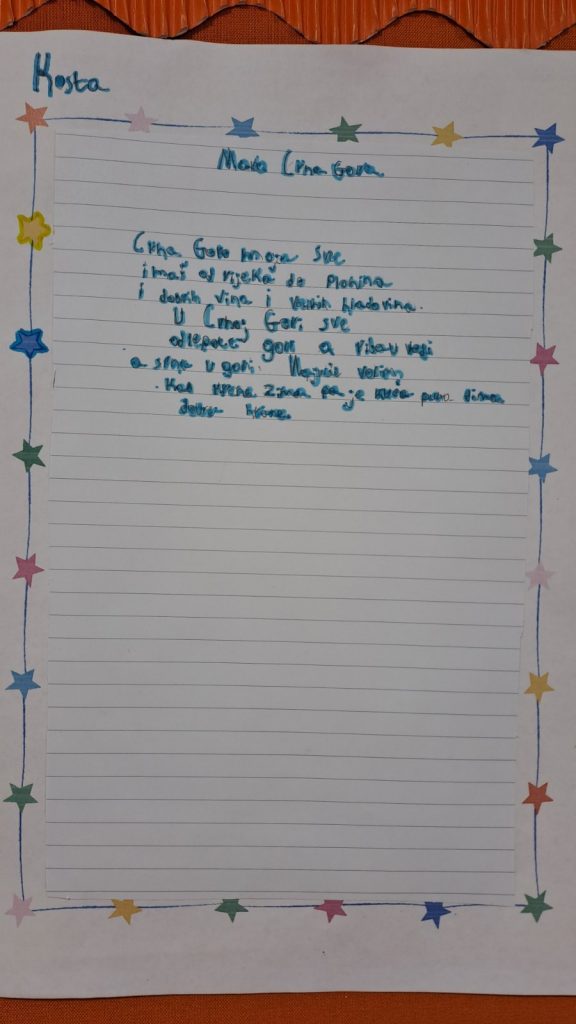 Kosta
Moja Crna Gora
Crna Goro moja sve
imaš od rijeka do planina
i dobrih vina i velikih hladovina.
U Crnoj Gori sve
od lepote gori a riba u vodi
a srna u gori. Najviše volim
kad krene zima pa je kuća puna dima
dobre hrane